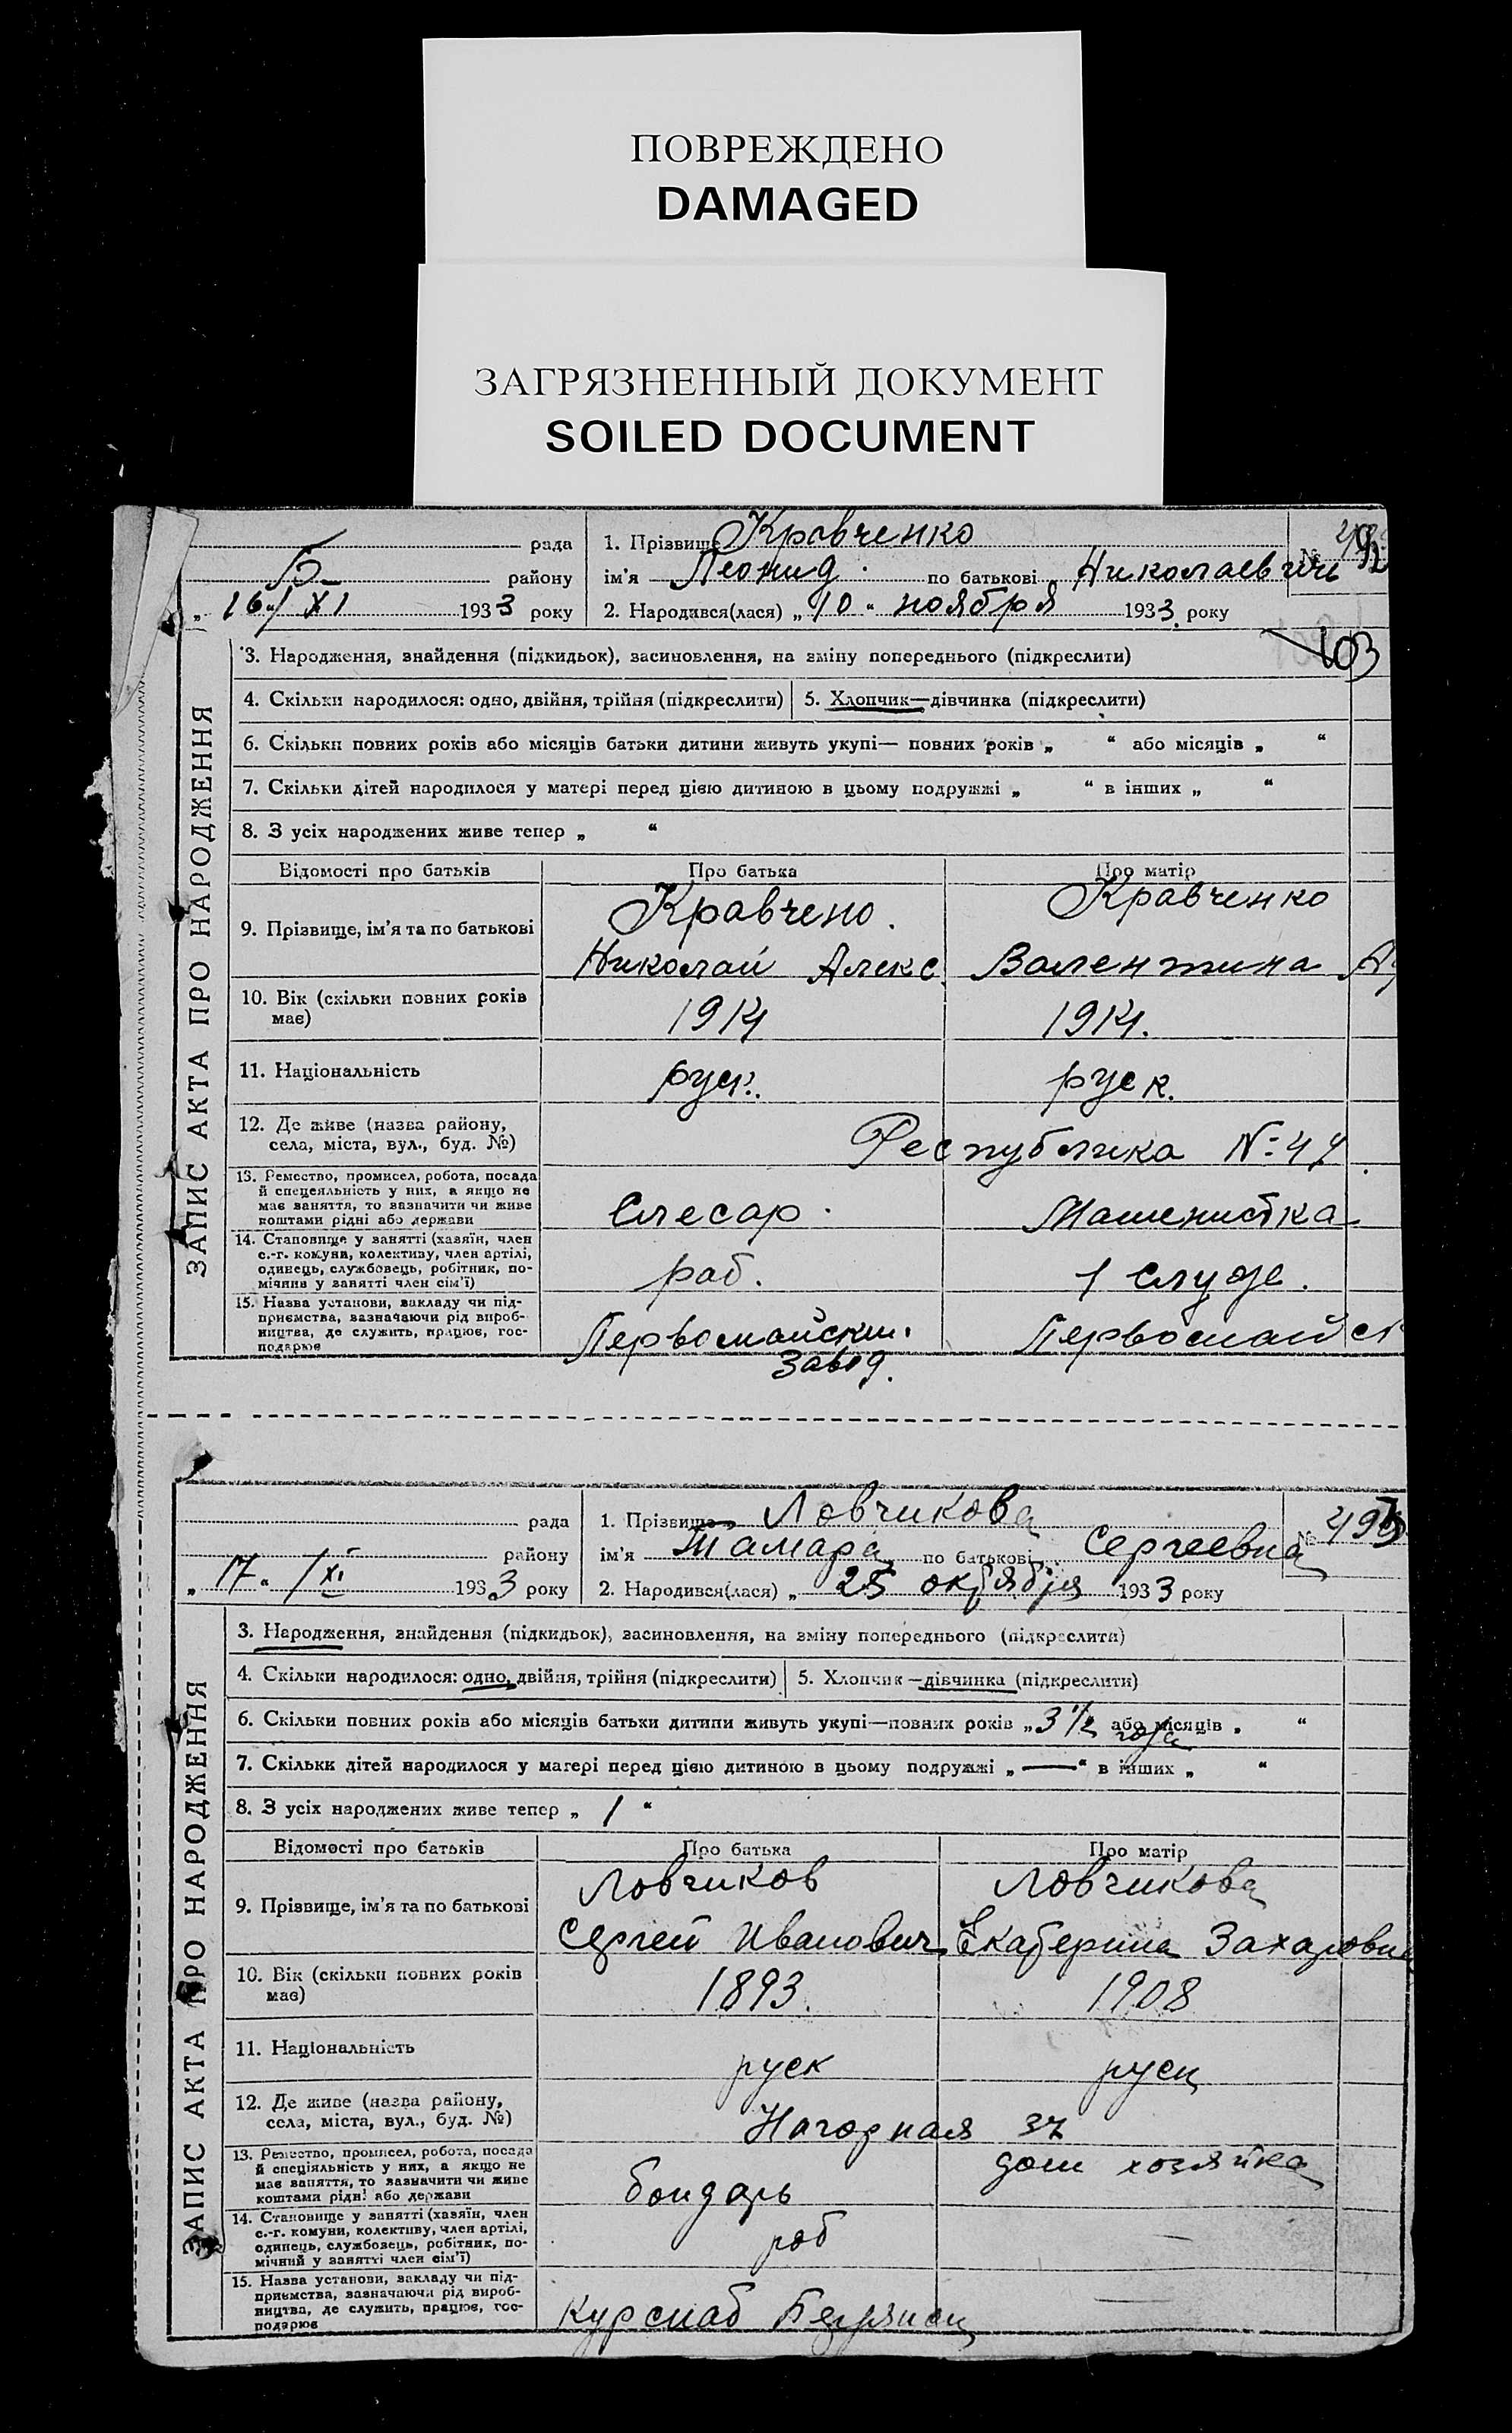 ПОВРЕЖДЕНО
DAMAGED
ЗАГРЯЗНЕННЫЙ ДОКУМЕНТ
SOILED DOCUMENT
рада
району
„ 16 / XI 1933 року
1. Прізвище Кравченко
ім'я Леонид по батькові Николаевичь
№
2. Народився(лася) „ 10 “ ноября 1933 року
103
ЗАПИС АКТА ПРО НАРОДЖЕННЯ
3. Народження, знайдення (підкидьок), засиновлення, на зміну попереднього (підкреслити)
4. Скільки народилося: одно, двійня, трійня (підкреслити) 5. Хлопчик—дівчинка (підкреслити)
6. Скільки повних років або місяців батьки дитини живуть укупі— повних років „ “ або місяців „ “
7. Скільки дітей народилося у матері перед цією дитиною в цьому подружжі „ “ в інших „ “
8. З усіх народжених живе тепер „ “
Відомості про батьків Про батька Про матір
9. Прізвище, ім'я та по батькові
Кравчено Кравченко
Николай Алекс. Валентина
10. Вік (скільки повних років має) 1914 1914.
11. Національність руск. руск.
12. Де живе (назва району, села, міста, вул., буд. №) Республика №
13. Ремество, промисел, робота, посада
й спецеяльність у них, а якщо не
має заняття, то зазначити чи живе
коштами рідні або держави
Слесар Машенистка
14. Становище у занятті (хазяїн, член
с.-г. комуни, колективу, член артілі,
одинець, службовець, робітник, по-
мічник у занятті член сім'ї)
раб. служ.
15. Назва установи, закладу чи під-
приємства, зазначаючи рід вироб-
ництва, де служить, працює, гос-
подарює
Первомайский Первомайск
завод.
рада
району
„ 17 “ / XI 1933 року
1. Прізвище Ловчикова
ім'я Тамара по батькові Сергеевна
№ 493
2. Народився(лася) „ 25 октября 1933 року
ЗАПИС АКТА ПРО НАРОДЖЕННЯ
3. Народження, знайдення (підкидьок), засиновлення, на зміну попереднього (підкреслити)
4. Скільки народилося: одно, двійня, трійня (підкреслити) 5. Хлопчик—дівчинка (підкреслити)
6. Скільки повних років або місяців батьки дитини живуть укупі—повних років „ 3 1/2 года або місяців „ “
7. Скільки дітей народилося у матері перед цією дитиною в цьому подружжі „ — “ в інших „ “
8. З усіх народжених живе тепер „ 1 “
Відомості про батьків Про батька Про матір
9. Прізвище, ім'я та по батькові
Ловчиков Ловчикова
Сергей Иванович Екатерина Захаровна
10. Вік (скільки повних років має) 1893. 1908
11. Національність руск руск
12. Де живе (назва району, села, міста, вул., буд. №) Нагорная
13. Ремество, промисел, робота, посада
й спеціяльність у них, а якщо не
має заняття, то зазначити чи живе
коштами рідні або держави
бондарь дом хозяйка
14. Становище у занятті (хазяїн, член
с.-г. комуни, колективу, член артілі,
одинець, службовець, робітник, по-
мічний у занятті член сім'ї)
раб —
15. Назва установи, закладу чи під-
приємства, зазначаючи рід вироб-
ництва, де служить, працює, гос-
подарює
Курснаб —